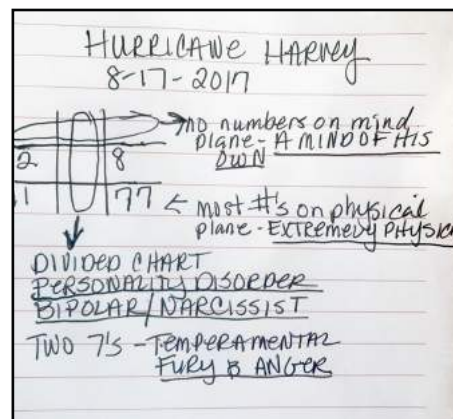 HURRICANE HARVEY
8-17-2017
no numbers on mind
plane - A MIND OF HIS
OWN
2 8
11 77 ← most #'s on physical
plane - EXTREMELY PHYSIC
DIVIDED CHART
PERSONALITY DISORDER
BIPOLAR/NARCISSIST
TWO 7'S - TEMPERAMENTAL
FURY & ANGER